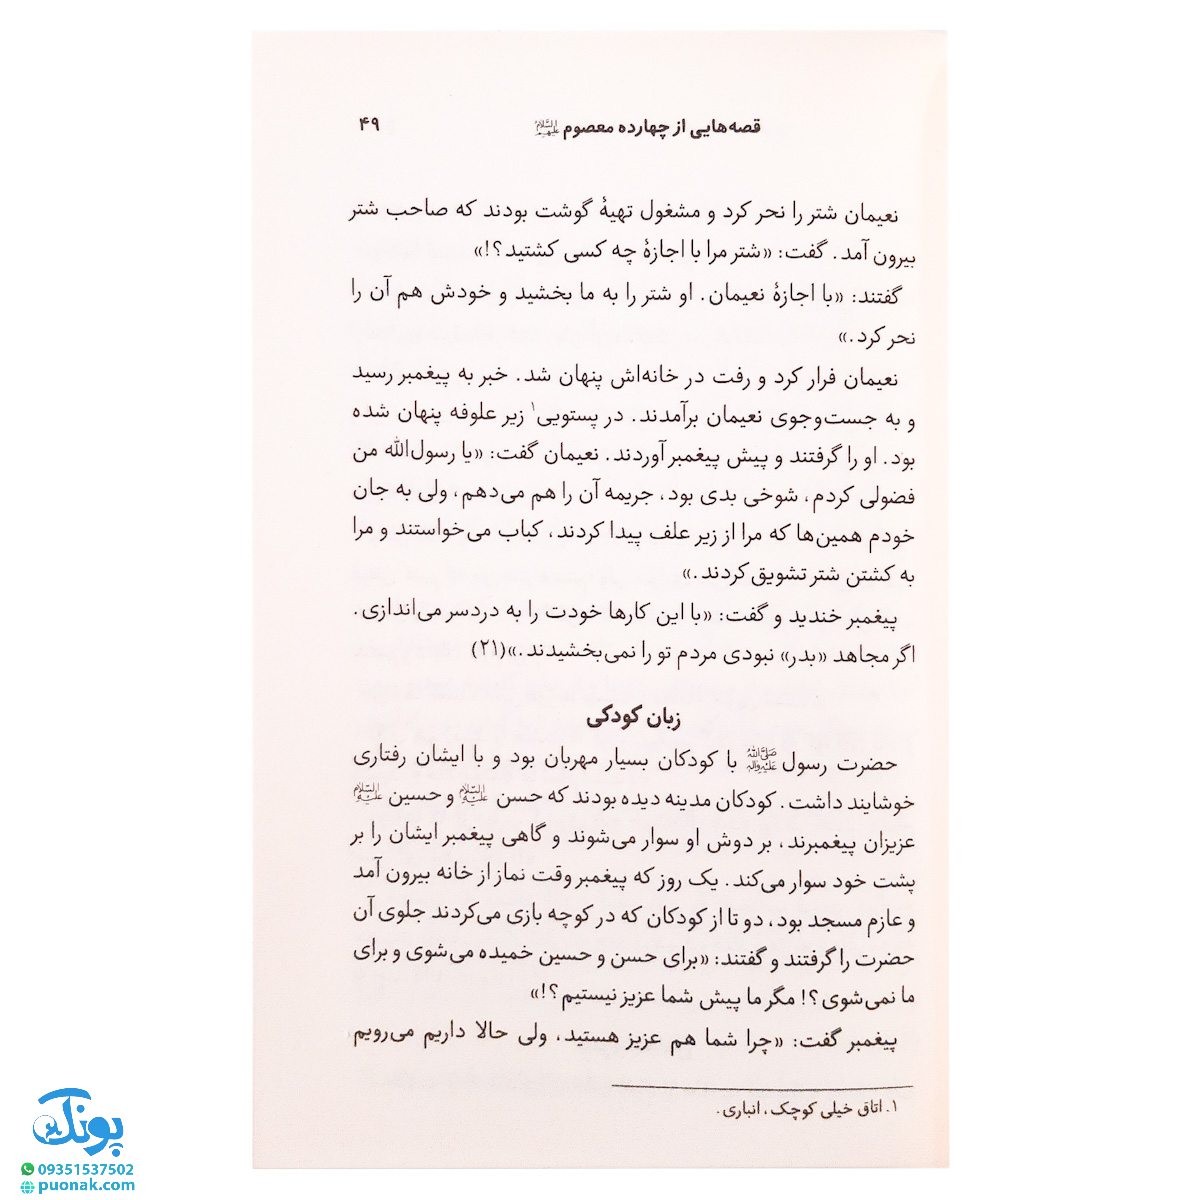 قصه‌هایی از چهارده معصوم علیهم السلام ۴۹
نعیمان شتر را نحر کرد و مشغول تهیهٔ گوشت بودند که صاحب شتر
بیرون آمد. گفت: «شتر مرا با اجازهٔ چه کسی کشتید؟!»
گفتند: «با اجازهٔ نعیمان. او شتر را به ما بخشید و خودش هم آن را
نحر کرد.»
نعیمان فرار کرد و رفت در خانه‌اش پنهان شد. خبر به پیغمبر رسید
و به جست‌وجوی نعیمان برآمدند. در پستویی۱ زیر علوفه پنهان شده
بود. او را گرفتند و پیش پیغمبر آوردند. نعیمان گفت: «یا رسول‌الله من
فضولی کردم، شوخی بدی بود، جریمه آن را هم می‌دهم، ولی به جان
خودم همین‌ها که مرا از زیر علف پیدا کردند، کباب می‌خواستند و مرا
به کشتن شتر تشویق کردند.»
پیغمبر خندید و گفت: «با این کارها خودت را به دردسر می‌اندازی.
اگر مجاهد «بدر» نبودی مردم تو را نمی‌بخشیدند.»(۲۱)
زبان کودکی
حضرت رسول صلی الله علیه وآله با کودکان بسیار مهربان بود و با ایشان رفتاری
خوشایند داشت. کودکان مدینه دیده بودند که حسن علیه السلام و حسین علیه السلام
عزیزان پیغمبرند، بر دوش او سوار می‌شوند و گاهی پیغمبر ایشان را بر
پشت خود سوار می‌کند. یک روز که پیغمبر وقت نماز از خانه بیرون آمد
و عازم مسجد بود، دو تا از کودکان که در کوچه بازی می‌کردند جلوی آن
حضرت را گرفتند و گفتند: «برای حسن و حسین خمیده می‌شوی و برای
ما نمی‌شوی؟! مگر ما پیش شما عزیز نیستیم؟!»
پیغمبر گفت: «چرا شما هم عزیز هستید، ولی حالا داریم می‌رویم
۱. اتاق خیلی کوچک، انباری.
پونک
09351537502
puonak.com